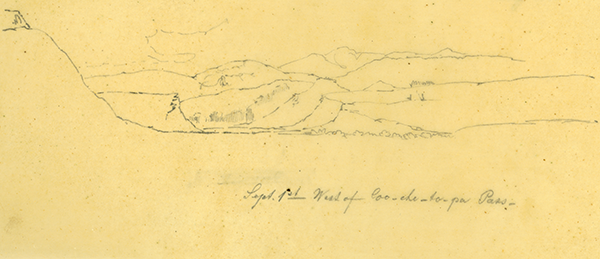 Sept. 1st West of Coo-che-to-pa Pass-